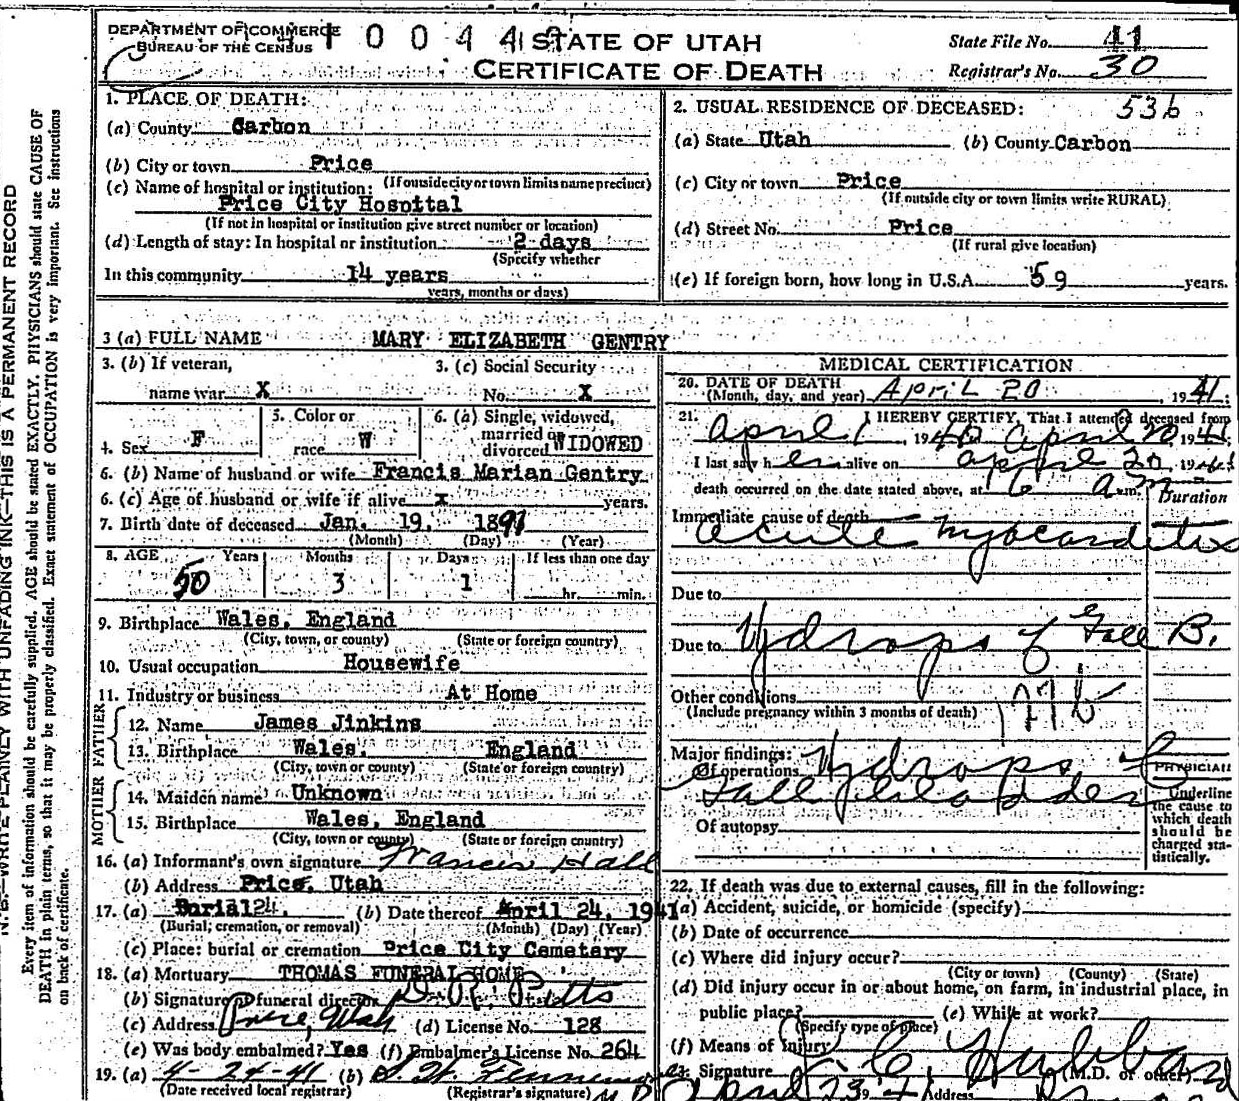 DEPARTMENT OF COMMERCE
BUREAU OF THE CENSUS
1 0 0 4 4
STATE OF UTAH
CERTIFICATE OF DEATH
State File No. 41
Registrar's No. 30
1. PLACE OF DEATH:
(a) County Carbon
(b) City or town Price
(If outside city or town limits name precinct)
(c) Name of hospital or institution:
Price City Hospital
(If not in hospital or institution give street number or location)
(d) Length of stay: In hospital or institution 2 days
(Specify whether
In this community 14 years
years, months or days)
2. USUAL RESIDENCE OF DECEASED: 536
(a) State Utah (b) County Carbon
(c) City or town Price
(If outside city or town limits write RURAL)
(d) Street No. Price
(If rural give location)
(e) If foreign born, how long in U.S.A. 59 years.
3 (a) FULL NAME MARY ELIZABETH GENTRY
3. (b) If veteran,
name war X
3. (c) Social Security
No. X
4. Sex F
5. Color or
race W
6. (a) Single, widowed,
married or
divorced WIDOWED
6. (b) Name of husband or wife Francis Marian Gentry
6. (c) Age of husband or wife if alive x years.
7. Birth date of deceased Jan. 19, 1891
(Month) (Day) (Year)
8. AGE Years Months Days If less than one day
50 3 1 hr. min.
9. Birthplace Wales, England
(City, town, or county) (State or foreign country)
10. Usual occupation Housewife
11. Industry or business At Home
FATHER
12. Name James Jinkins
13. Birthplace Wales, England
(City, town or county) (State or foreign country)
MOTHER
14. Maiden name Unknown
15. Birthplace Wales, England
(City, town or county) (State or foreign country)
16. (a) Informant's own signature Francis Hall
(b) Address Price, Utah
17. (a) Burial 24. (b) Date thereof April 24, 1941
(Burial, cremation, or removal) (Month) (Day) (Year)
(c) Place: burial or cremation Price City Cemetary
18. (a) Mortuary THOMAS FUNERAL HOME
(b) Signature of funeral director Pitts
(c) Address Price, Utah (d) License No. 128
(e) Was body embalmed? Yes (f) Embalmer's License No. 264
19. (a) 4-24-41 (b)
(Date received local registrar) (Registrar's signature)
MEDICAL CERTIFICATION
20. DATE OF DEATH
(Month, day, and year) April 20 1941;
21. I HEREBY CERTIFY, That I attended deceased from
April 1, 1940 April 20 1941;
I last saw her alive on April 20, 1941;
death occurred on the date stated above, at 6 a.m. Duration
Immediate cause of death
acute myocarditis
Due to
Due to Hydrops of Gall B.
Other conditions
(Include pregnancy within 3 months of death)
Major findings:
Of operations Hydrops of
Gall bladder
Of autopsy
PHYSICIAN
Underline
the cause to
which death
should be
charged sta-
tistically.
22. If death was due to external causes, fill in the following:
(a) Accident, suicide, or homicide (specify)
(b) Date of occurrence
(c) Where did injury occur?
(City or town) (County) (State)
(d) Did injury occur in or about home, on farm, in industrial place, in
public place? (e) While at work?
(Specify type of place)
(f) Means of injury
Signature Hubbard
(M.D. or other)
April 23 Address
N. B.—WRITE PLAINLY WITH UNFADING INK—THIS IS A PERMANENT RECORD
Every item of information should be carefully supplied. AGE should be stated EXACTLY. PHYSICIANS should state CAUSE OF
DEATH in plain terms, so that it may be properly classified. Exact statement of OCCUPATION is very important. See instructions
on back of certificate.